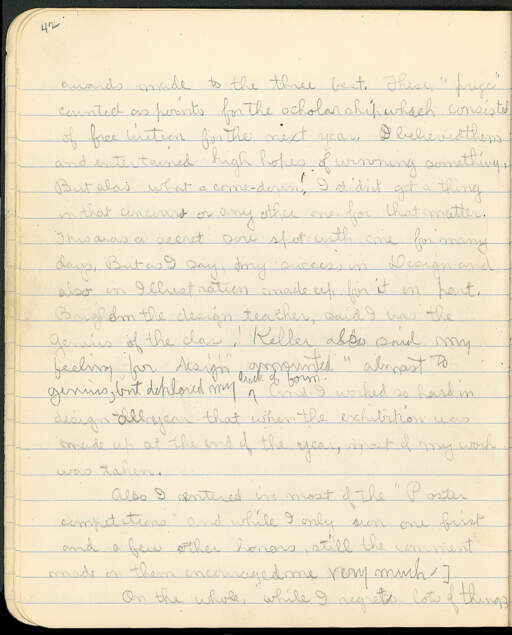 42
awards made to the three best. These "prize"
counted as points for the scholarship which consisted
of free tuition for the next year. I believed them
and entertained high hopes of winning something.
But alas what a come-down! I didn't get a thing
in that concours or any other one for that matter.
This was a secret sore spot with me for many
days. But as I say, my success in Design and
also in Illustration made up for it in part.
the design teacher, said I was the
genius of the class! Keller also said my
feeling for design amounted "almost to
genius, but deplored my lack of form.
And I worked so hard in
design all year that when the exhibition was
made up at the end of the year, most of my work
was taken.
Also I entered in most of the "Poster
competitions" and while I only won one first
and a few other honors, still the comment
made on them encouraged me very much.]
On the whole, while I regrets lots of things